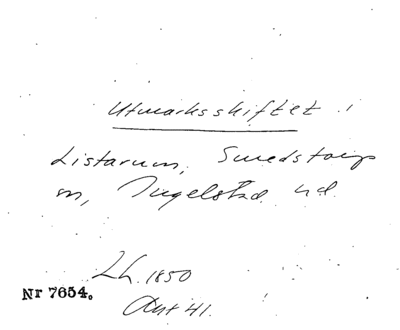 Utmarksskiftet i
Listarum, Smedstorps
sn, Ingelstad hd
Lh. 1850
Nr 7654.
Akt 41.